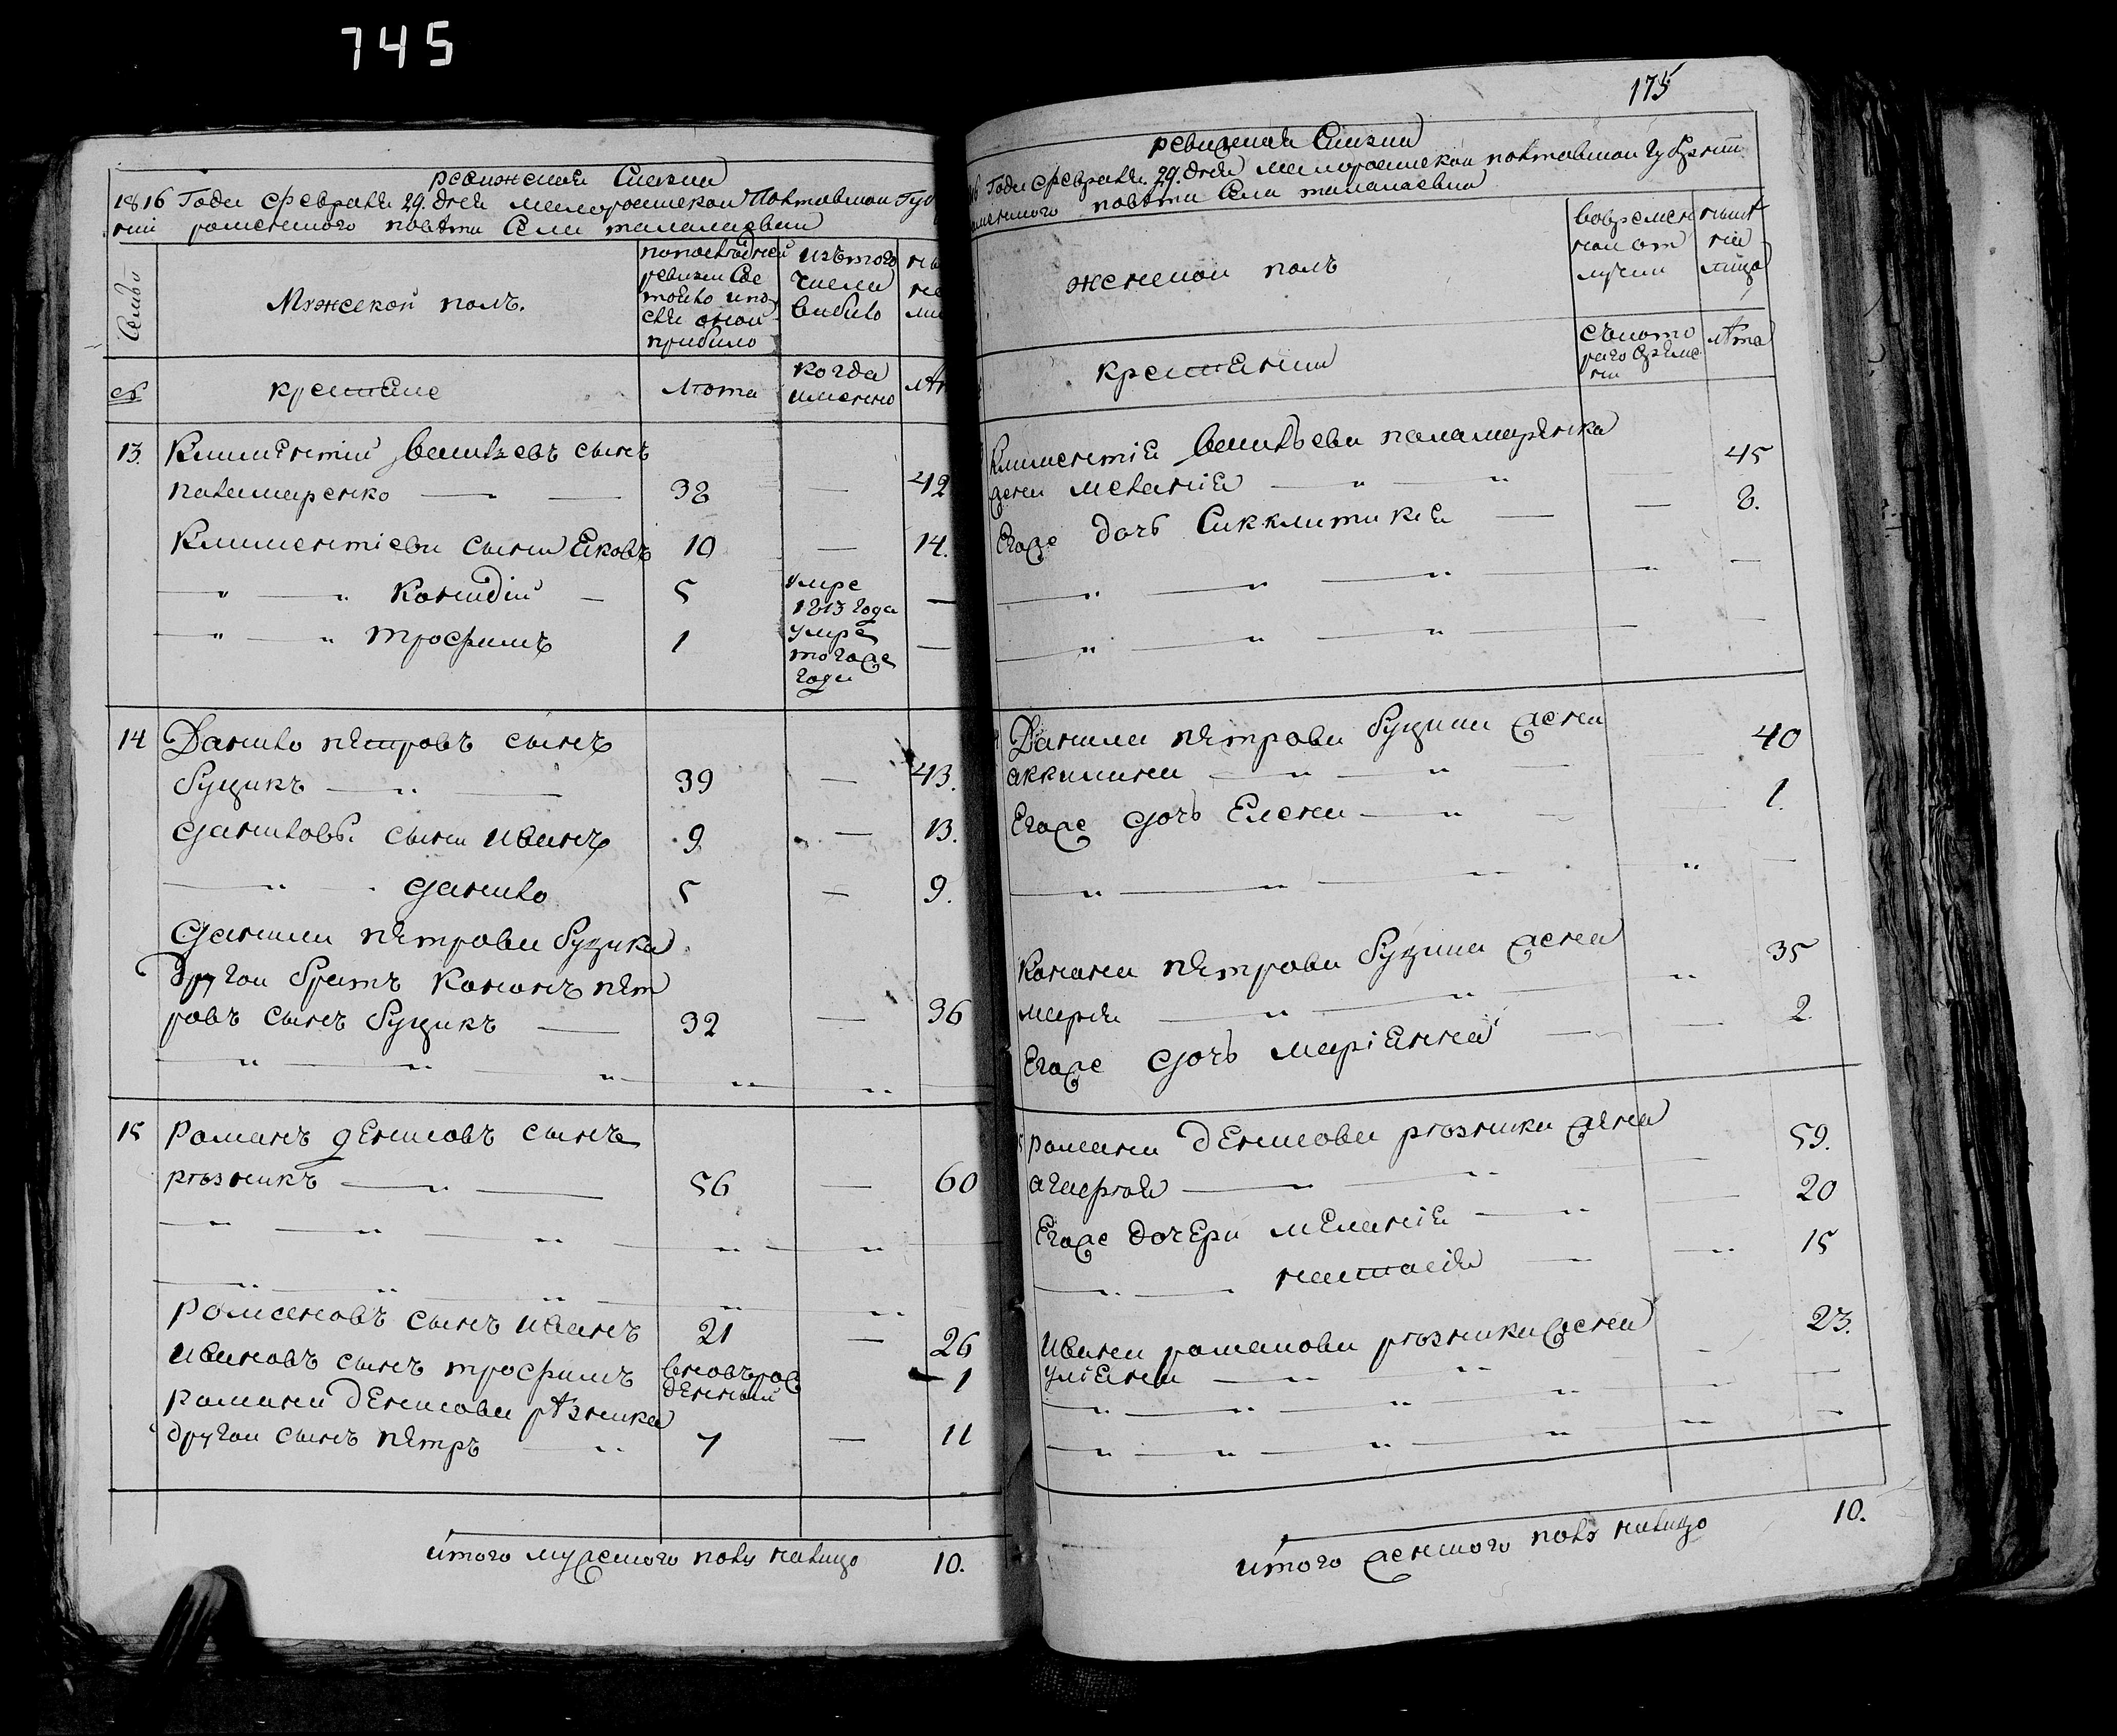 745
ревижская Сказка
1816 Года февраля 29. дня малоросийской Полтавской Губ
нии роменского повета Села талалаевки
Семьи
Мужеской полъ.
попоследней
ревизии Сос
тояло ипо
сле оной
прибыло
изътого
числа
выбыло
№
крестяне
лета
когда
именно
13. Климентий васильевъ сынъ
паламаренко 38 — 42
Климентиеви сыни яковъ 10 — 14.
" " Конидий — 5
умре
1813 года
—
" " трофимъ 1
умре
тогоже
года
—
14 Данило петровъ сынъ
буцикъ 39 — 43.
даниловы сыни иванъ 9 — 13.
" данило 5 — 9.
данила петрова буцика
другой братъ кононъ пет
ровъ сынъ буцикъ 32 — 36
15 Романъ денисовъ сынъ
резникъ 56 — 60
романовъ сынъ иванъ 21 — 26
ивановъ сынъ трофимъ
вновърож
денный
1
романа денисова резника
другой сынъ петръ 7 — 11
итого мужеского пола налицо 10.
175
ревизская Сказка
Года февраля. 29. дня малоросийской полтавской губернии
роменского повета Села талалаевки
женской полъ
вовремен
ной от
лучки
ныне
налицо
крестянки
скотораго времени
лета
Климентия васильева паламаренка
жена мелания " " 45
Егоже дочь Сикклитикия — — 8.
Данила петрова буцика жена
аккилина " " 40
Егоже дочь Елена " 1.
конона петрова буцика жена
марья 35
Егоже дочь мариянна 2
романа денисова резника жена
агафья 59.
Егоже дочери мелания 20
настасия 15
ивана романова резника жена
улияна 23.
итого женского пола налицо 10.